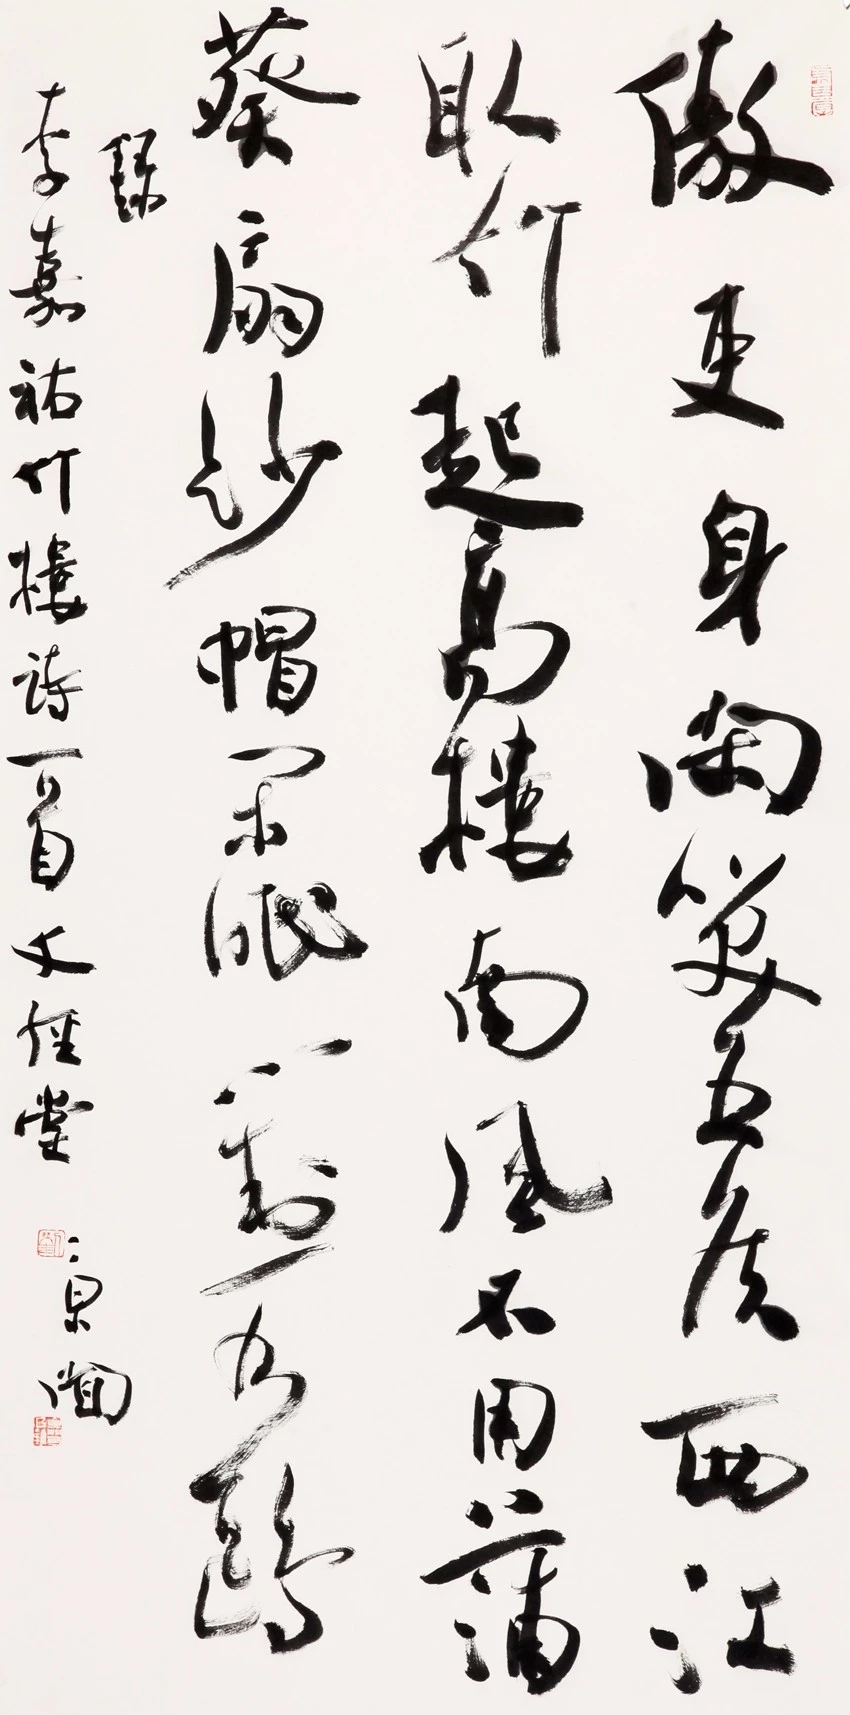 傲吏身閑笑五侯西江
取竹起高樓南風不用蒲
葵扇紗帽閑眠對水鷗
錄
李嘉祐竹樓詩一首文經堂